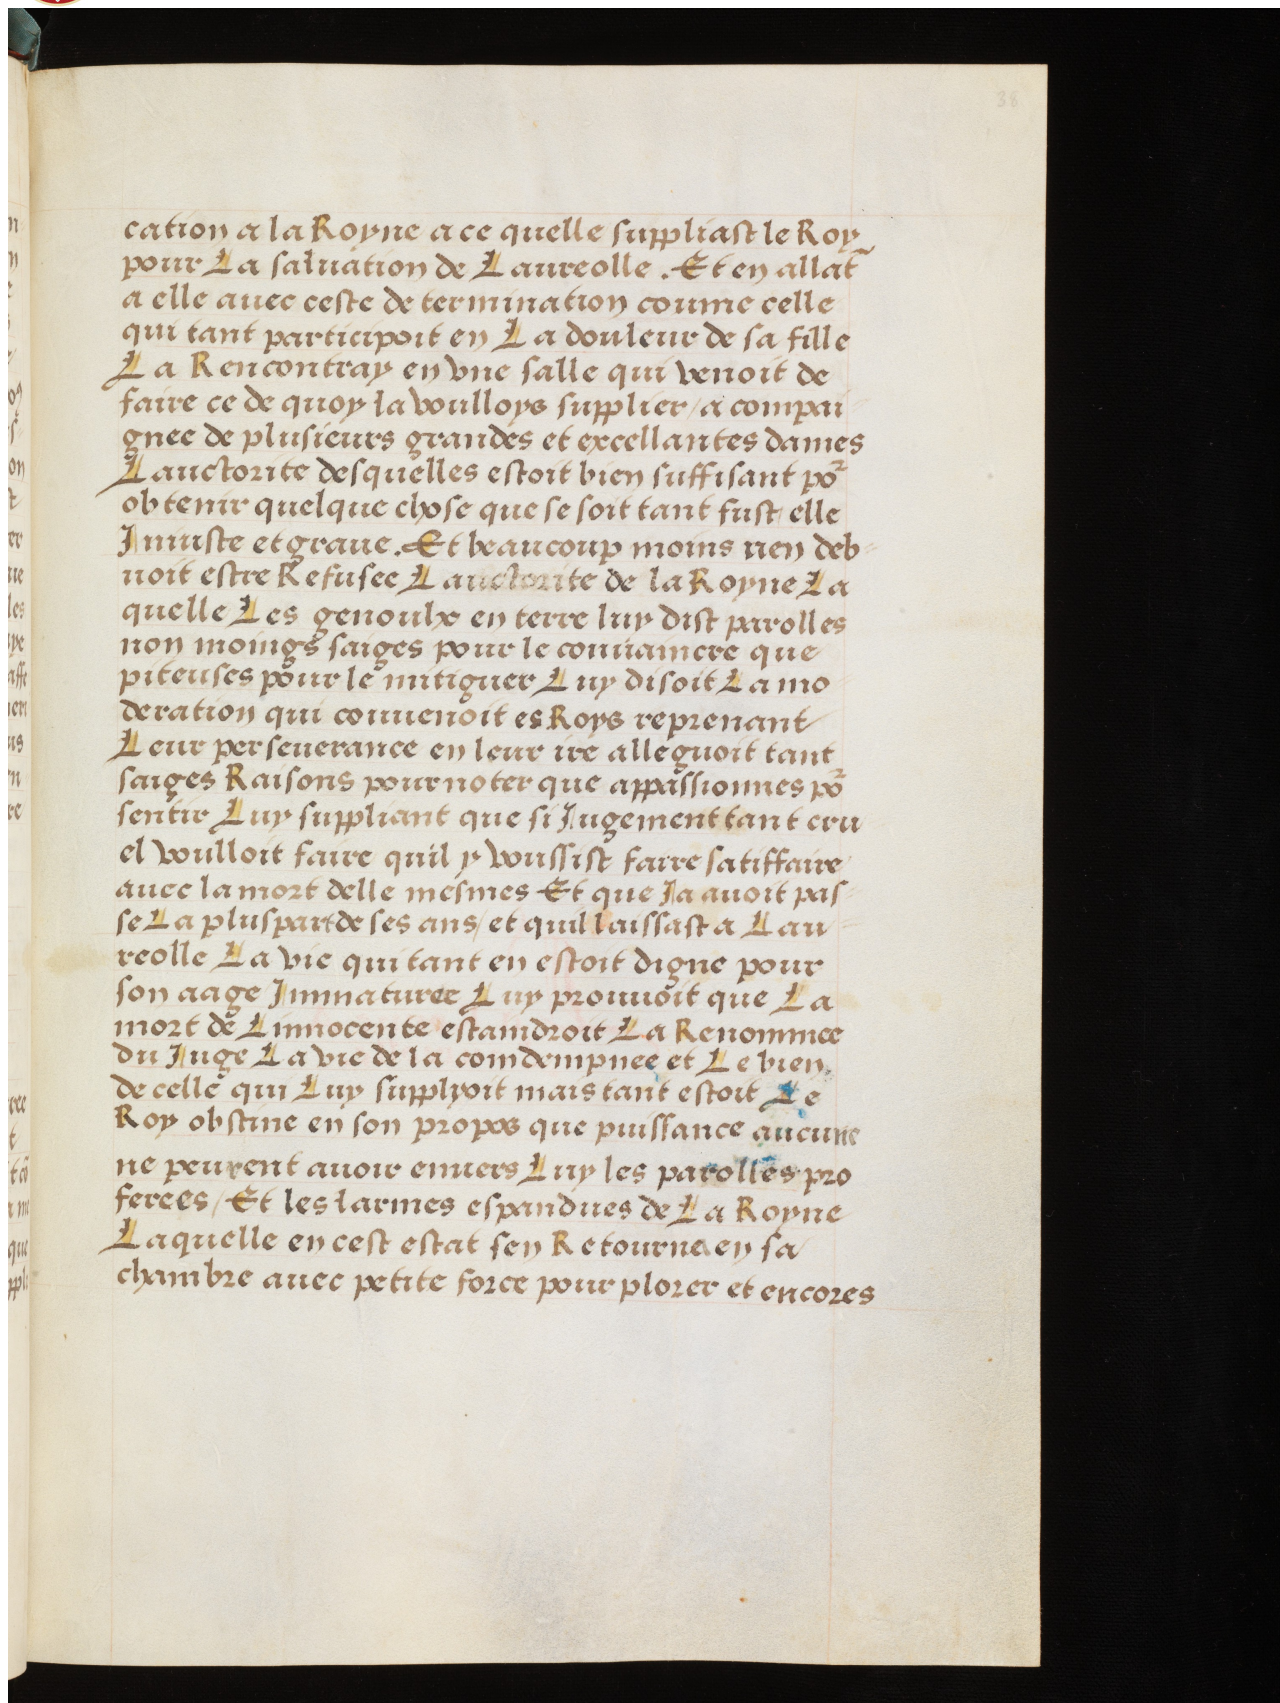 38
cation a la Royne a ce quelle suppliast le Roy
pour La saluation de Laureolle . Et en allãt
a elle auec ceste de termination comme celle
qui tant participoit en La douleur de sa fille
La Rencontray en vne salle qui venoit de
faire ce de quoy la voulloys supplier / a compai-
gnee de plusieurs grandes et excellantes dames
Lauctorite desquelles estoit bien suffisant po2
obtenir quelque chose que se soit tant fust elle
Iniuste et graue . Et beaucoup moins rien deb-
uoit estre Refusee Lauctorite de la Royne La
quelle Les genoulx en terre luy dist parolles
non moings saiges pour le conuaincre que
piteuses pour le mitiguer Luy disoit La mo
deration qui conuenoit es Roys reprenant
Leur perseuerance en leur ire alleguoit tant
saiges Raisons pour noter que appassionnes po2
sentir Luy suppliant que si Iugement tant cru
el voulloit faire quil y voussist faire satiffaire
auec la mort delle mesmes Et que Ia auoit pas-
se La pluspart de ses ans / et quil laissast a Lau-
reolle La vie qui tant en estoit digne pour
son aage Immaturee Luy prouuoit que La
mort de Linnocente estaindroit La Renommee
du Iuge La vie de la comdempnee et Le bien
de celle qui Luy supplyoit mais tant estoit Le
Roy obstine en son propos que puissance aucune
ne peurent auoir enuers Luy les parolles pro
ferees / Et les larmes espandues de La Royne
Laquelle en cest estat sen Retourna en sa
chambre auec petite force pour plorer et encores